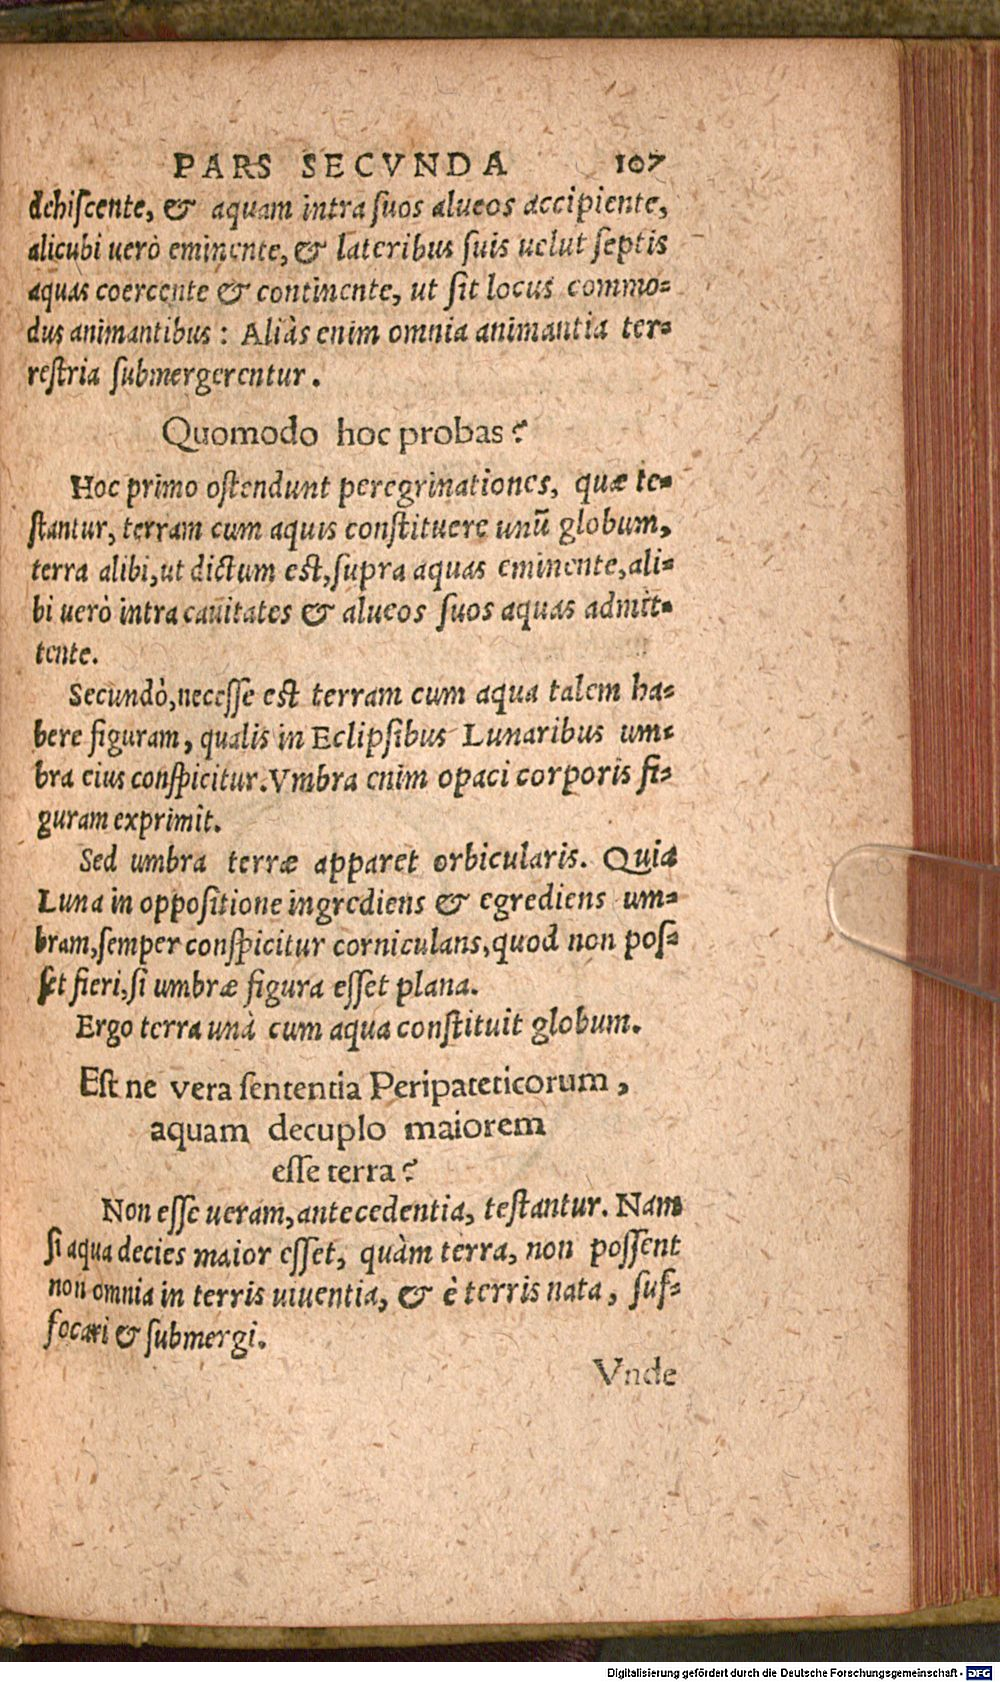 PARS SECVNDA 107
dehiſcente, & aquam intra ſuos alueos accipiente,
alicubi uerò eminente, & lateribus ſuis uelut ſeptis
aquas coercente & continente, ut ſit locus commo-
dus animantibus: Aliàs enim omnia animantia ter-
reſtria ſubmergerentur.
Quomodo hoc probas?
Hoc primo oſtendunt peregrinationes, quæ te-
ſtantur, terram cum aquis conſtituere unũ globum,
terra alibi, ut dictum eſt, ſupra aquas eminente, ali-
bi uerò intra cauitates & alueos ſuos aquas admit-
tente.
Secundò, neceſſe eſt terram cum aqua talem ha-
bere figuram, qualis in Eclipſibus Lunaribus um-
bra eius conſpicitur. Vmbra enim opaci corporis fi-
guram exprimit.
Sed umbra terræ apparet orbicularis. Quia
Luna in oppoſitione ingrediens & egrediens um-
bram, ſemper conſpicitur corniculans, quod non poſ-
ſet fieri, ſi umbræ figura eſſet plana.
Ergo terra unà cum aqua conſtituit globum.
Eſt ne vera ſententia Peripateticorum,
aquam decuplo maiorem
eſſe terra?
Non eſſe ueram, antecedentia, teſtantur. Nam
ſi aqua decies maior eſſet, quàm terra, non poſſent
non omnia in terris uiuentia, & è terris nata, ſuf-
focari & ſubmergi.
Vnde
Digitalisierung gefördert durch die Deutsche Forschungsgemeinschaft - DFG